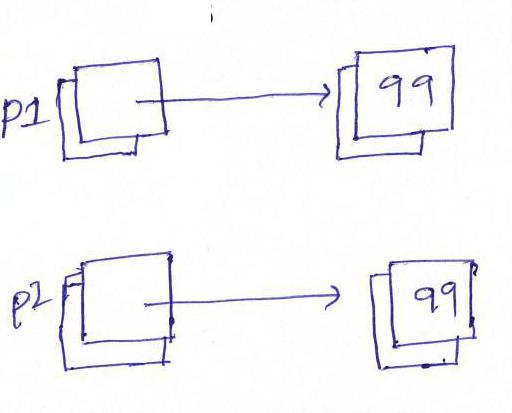 p1 99
p2 99